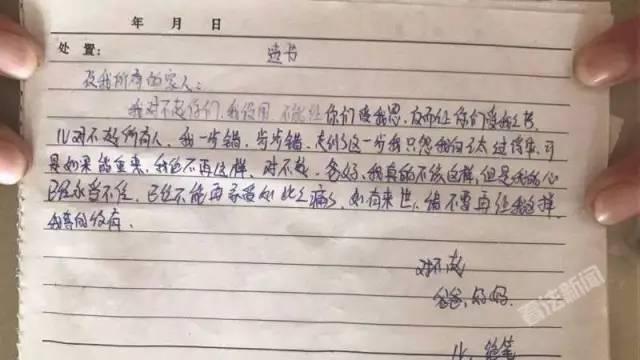 年 月 日
处置： 遗书
及我所有的家人：
我对不起你们，我没用，不能让你们受我恩，反而让你们受我之苦，
儿对不起所有人，我一步错，步步错，走到了这一步我只想我的 太过 可
是如果能重来，我绝不再这样，对不起，爸妈，我真的不该这样，但是我的心
已经承当不住，已经不能再承受如此之痛了，如有来世，请不要再让我这样
我真的没有。
对不起
爸爸，妈妈
儿 绝笔
看法新闻